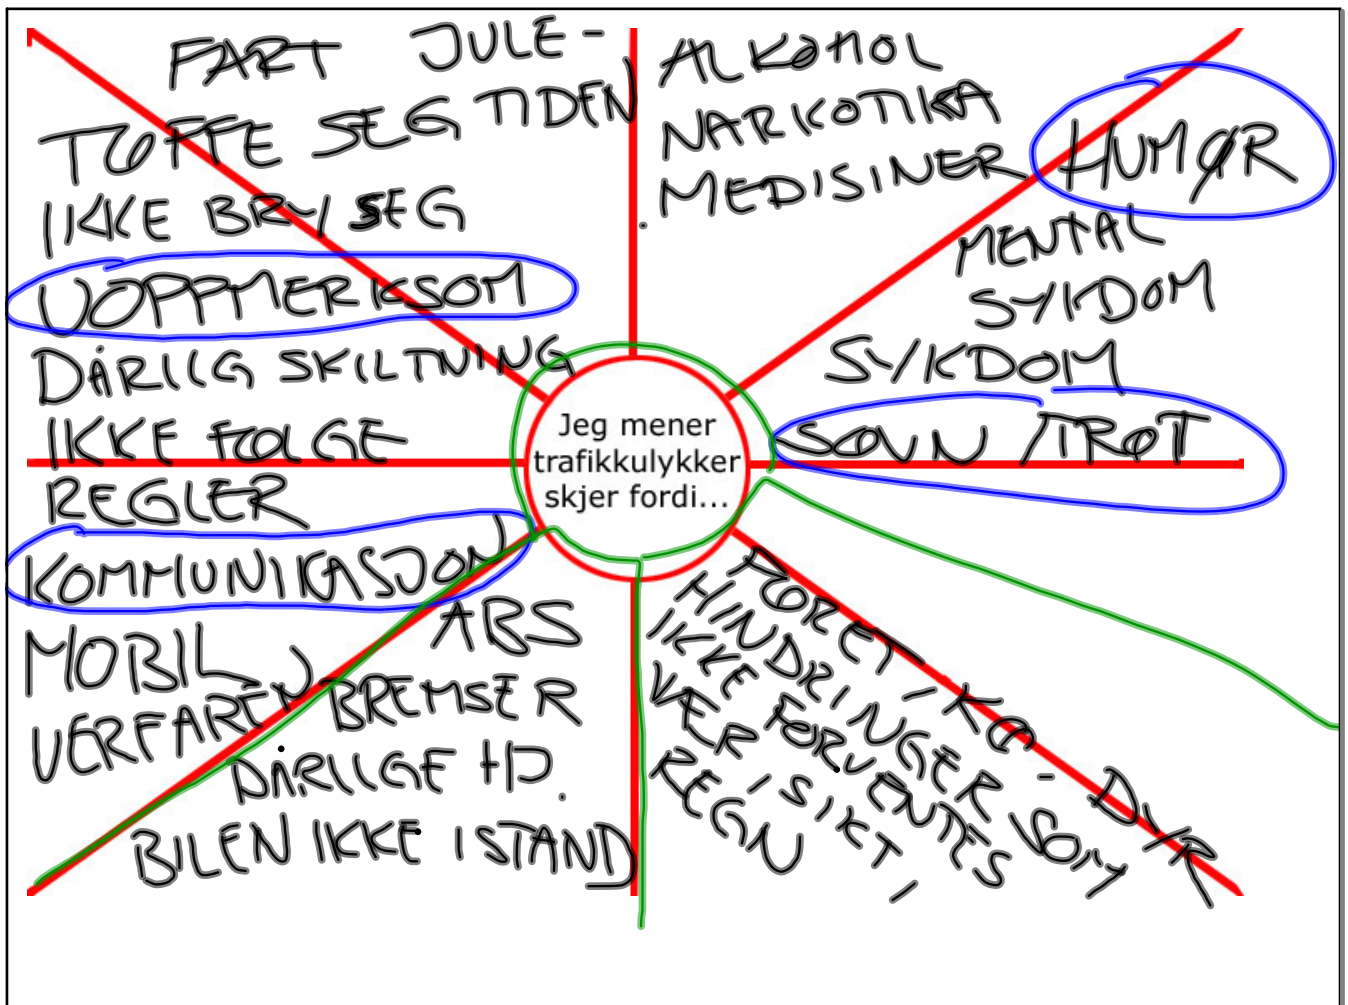 FART JULE-
TIDEN
TØFFE SEG
IKKE BRY SEG
UOPPMERKSOM
DÅRLIG SKILTNING
IKKE FØLGE
REGLER
KOMMUNIKASJON
MOBIL
UERFAREN
ALKOHOL
NARKOTIKA
MEDISINER
HUMØR
MENTAL
SYKDOM
SYKDOM
SØVN / TRØT
Jeg mener
trafikkulykker
skjer fordi...
ABS
BREMSER
DÅRLIGE HJ.
BILEN IKKE I STAND
FØRET - KØ - DYR
HINDRINGER SOM
IKKE FORVENTES
VÆR, SIKT,
REGN